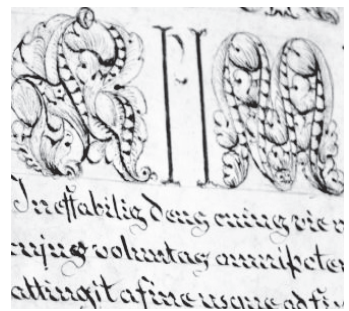 Ineffabilis Deus cuius vie
cuius voluntas omnipoten
attingit a fine usque ad fi